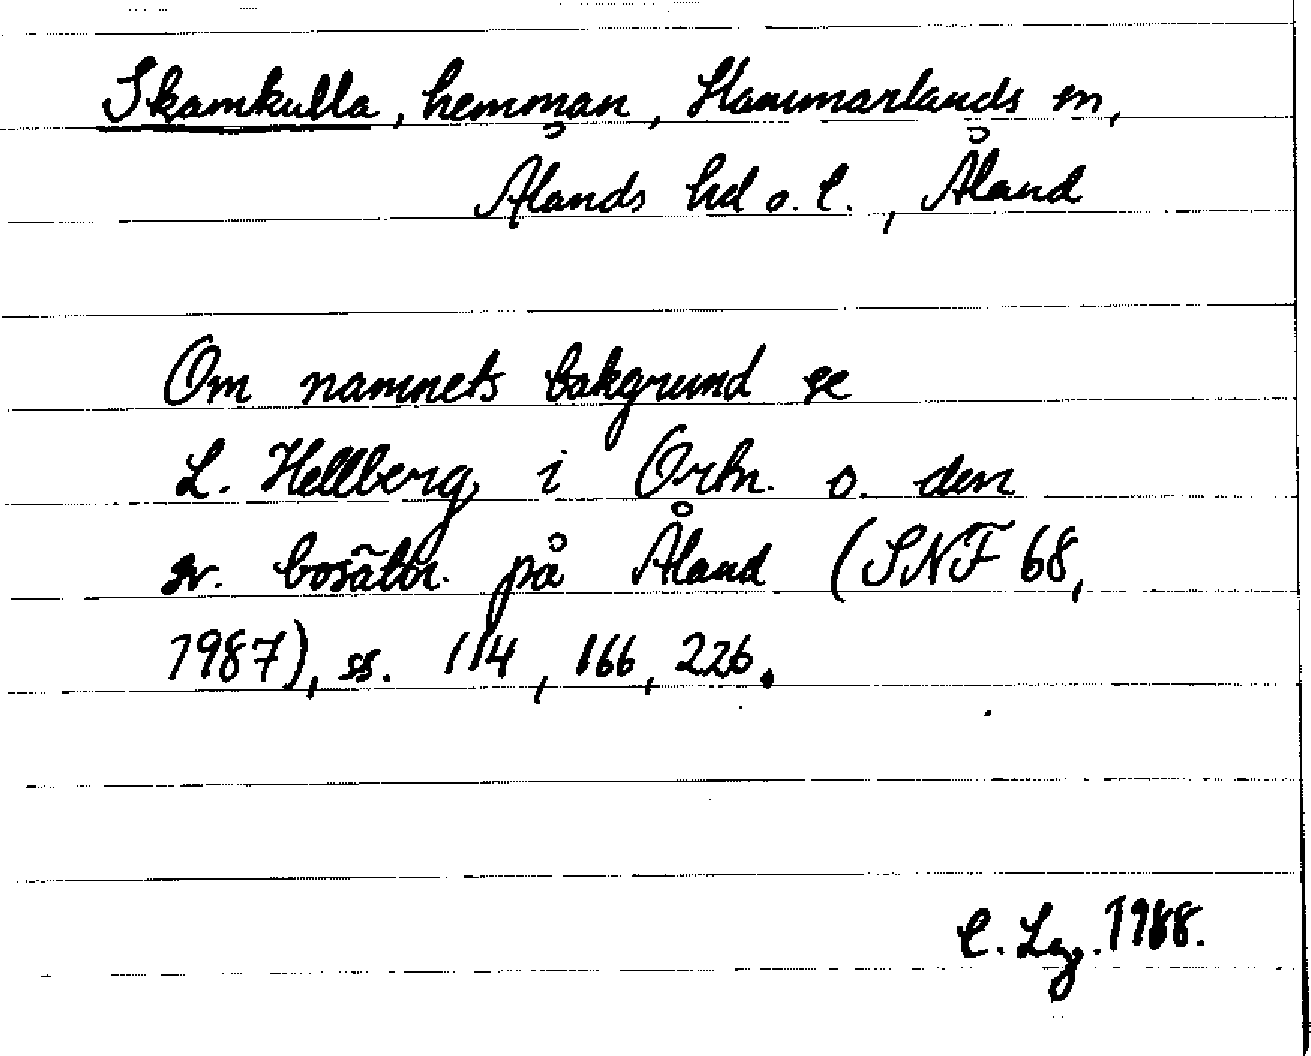 Skamkulla, hemman, Hammarlands sn,
Ålands hd o. l., Åland
Om namnets bakgrund se
L. Hellberg i Ortn. o. den
sv. bosättn. på Åland (SNF 68,
1987), ss. 114, 166, 226.
C. Lag. 1988.